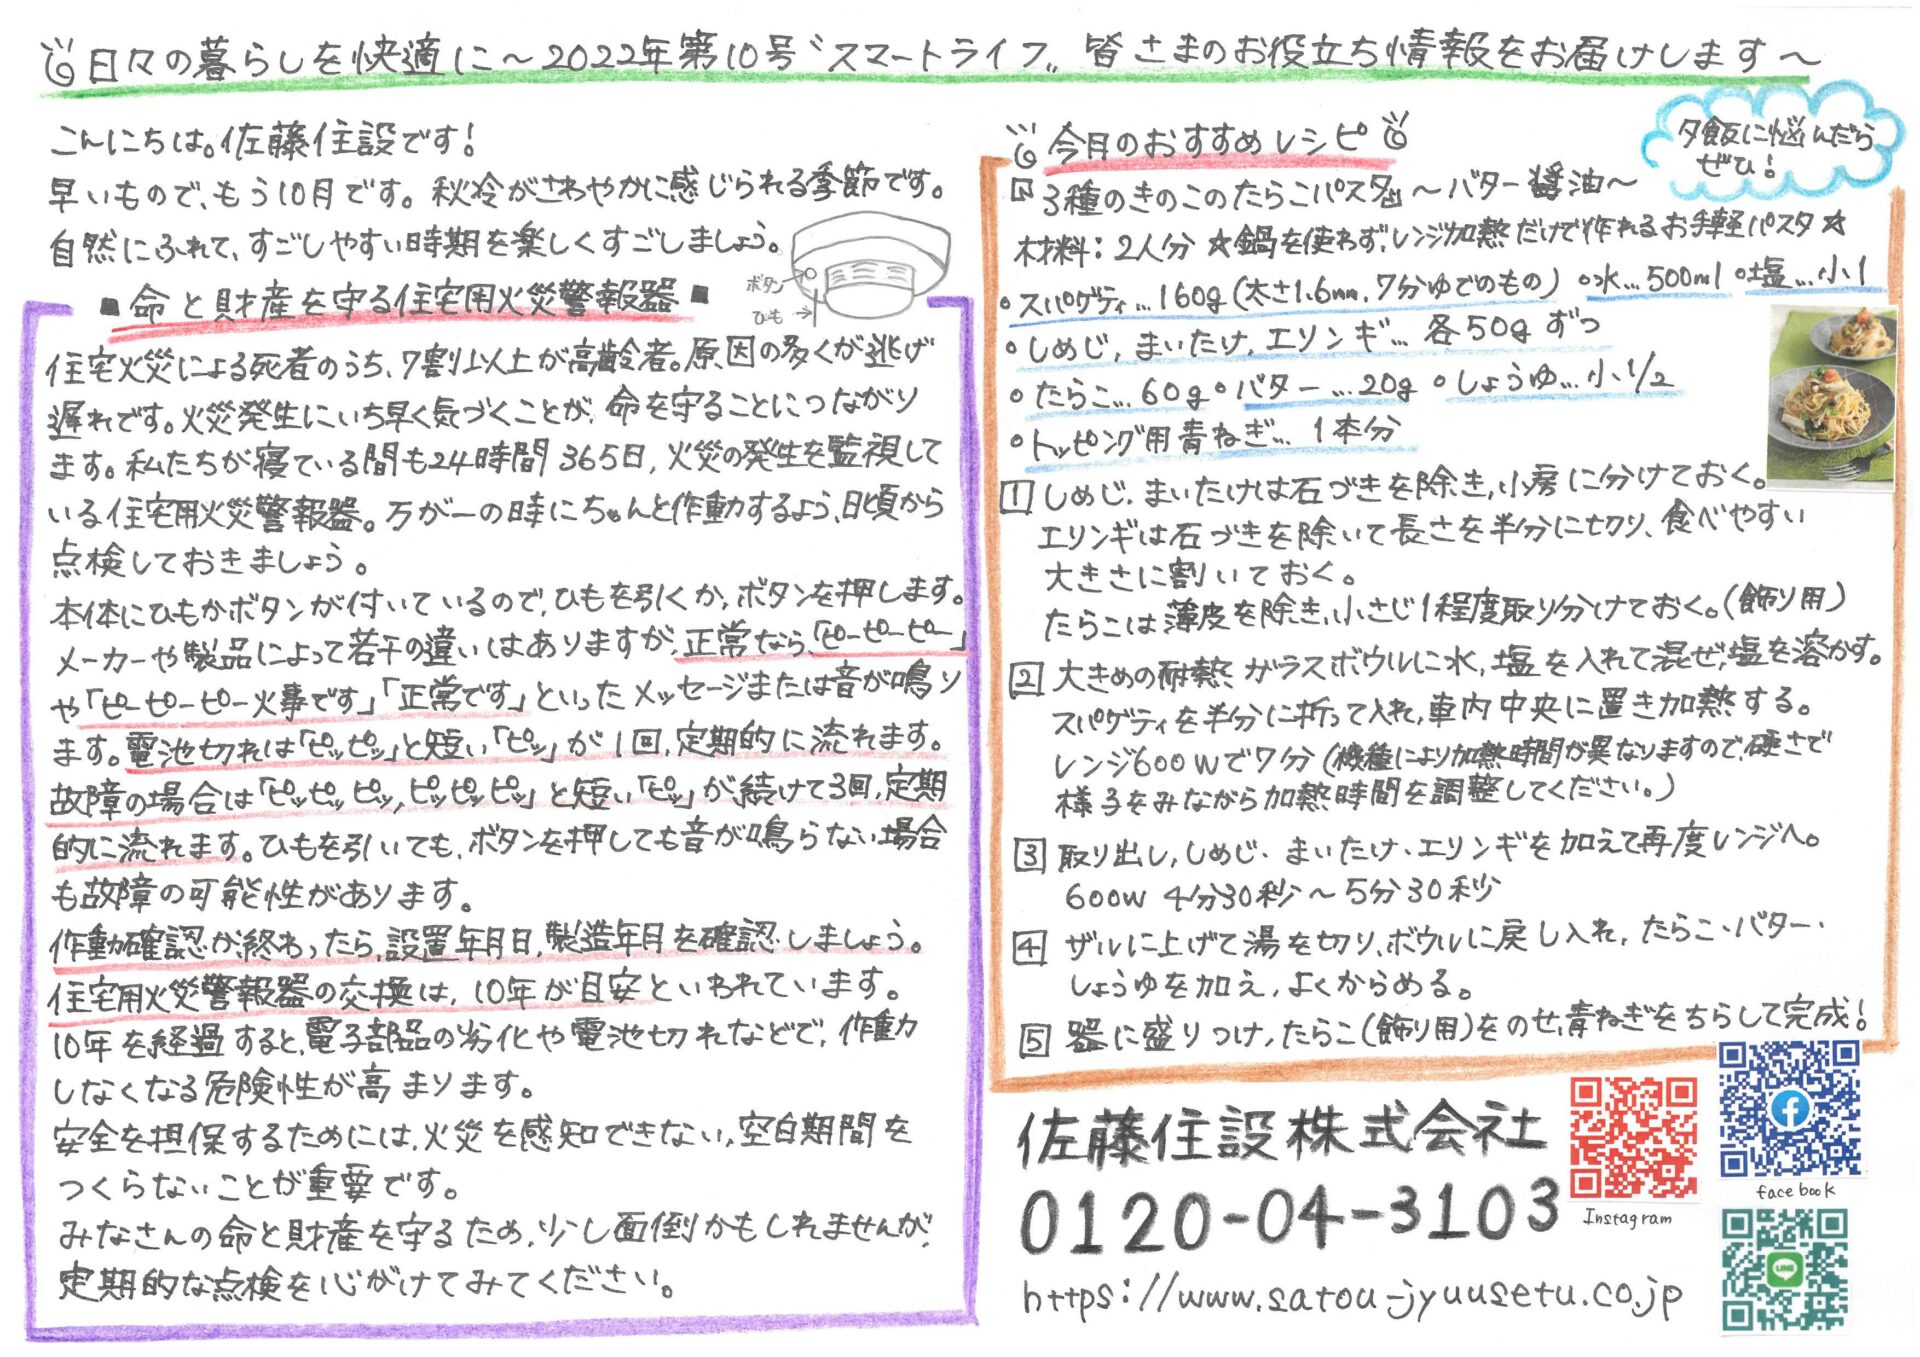 日々の暮らしを快適に～2022年第10号〝スマートライフ〟皆さまのお役立ち情報をお届けします～
こんにちは。佐藤住設です！
早いもので、もう10月です。秋冷がさわやかに感じられる季節です。
自然にふれて、すごしやすい時期を楽しくすごしましょう。
ボタン→
ひも→
■命と財産を守る住宅用火災警報器■
住宅火災による死者のうち、7割以上が高齢者。原因の多くが逃げ
遅れです。火災発生にいち早く気づくことが、命を守ることにつながり
ます。私たちが寝ている間も24時間365日、火災の発生を監視して
いる住宅用火災警報器。万が一の時にちゃんと作動するよう、日頃から
点検しておきましょう。
本体にひもかボタンが付いているので、ひもを引くか、ボタンを押します。
メーカーや製品によって若干の違いはありますが、正常なら、「ピーピーピー」
や「ピーピーピー火事です」「正常です」といったメッセージまたは音が鳴り
ます。電池切れは「ピッピッ」と短い「ピッ」が1回、定期的に流れます。
故障の場合は「ピッピッピッ、ピッピッピッ」と短い「ピッ」が続けて3回、定期
的に流れます。ひもを引いても、ボタンを押しても音が鳴らない場合
も故障の可能性があります。
作動確認が終わったら、設置年月日、製造年月を確認しましょう。
住宅用火災警報器の交換は、10年が目安といわれています。
10年を経過すると、電子部品の劣化や電池切れなどで、作動
しなくなる危険性が高まります。
安全を担保するためには、火災を感知できない、空白期間を
つくらないことが重要です。
みなさんの命と財産を守るため、少し面倒かもしれませんが、
定期的な点検を心がけてみてください。
今月のおすすめレシピ
夕飯に悩んだら
ぜひ！
『3種のきのこのたらこパスタ』～バター醤油～
材料：2人分 ☆鍋を使わず、レンジ加熱だけで作れるお手軽パスタ☆
・スパゲティ…160g（太さ1.6mm、7分ゆでのもの） ・水…500ml ・塩…小1
・しめじ、まいたけ、エリンギ…各50gずつ
・たらこ…60g ・バター…20g ・しょうゆ…小1/2
・トッピング用青ねぎ…1本分
1 しめじ、まいたけは石づきを除き、小房に分けておく。
エリンギは石づきを除いて長さを半分に切り、食べやすい
大きさに割いておく。
たらこは薄皮を除き、小さじ1程度取り分けておく。（飾り用）
2 大きめの耐熱ガラスボウルに水、塩を入れて混ぜ、塩を溶かす。
スパゲティを半分に折って入れ、車内中央に置き加熱する。
レンジ600Wで7分（機種により加熱時間が異なりますので、硬さで
様子をみながら加熱時間を調整してください。）
3 取り出し、しめじ・まいたけ・エリンギを加えて再度レンジへ。
600W 4分30秒～5分30秒
4 ザルに上げて湯を切り、ボウルに戻し入れ、たらこ・バター・
しょうゆを加え、よくからめる。
5 器に盛りつけ、たらこ（飾り用）をのせ、青ねぎをちらして完成！
佐藤住設株式会社
0120-04-3103
https://www.satou-jyuusetu.co.jp
Instagram
facebook
LINE